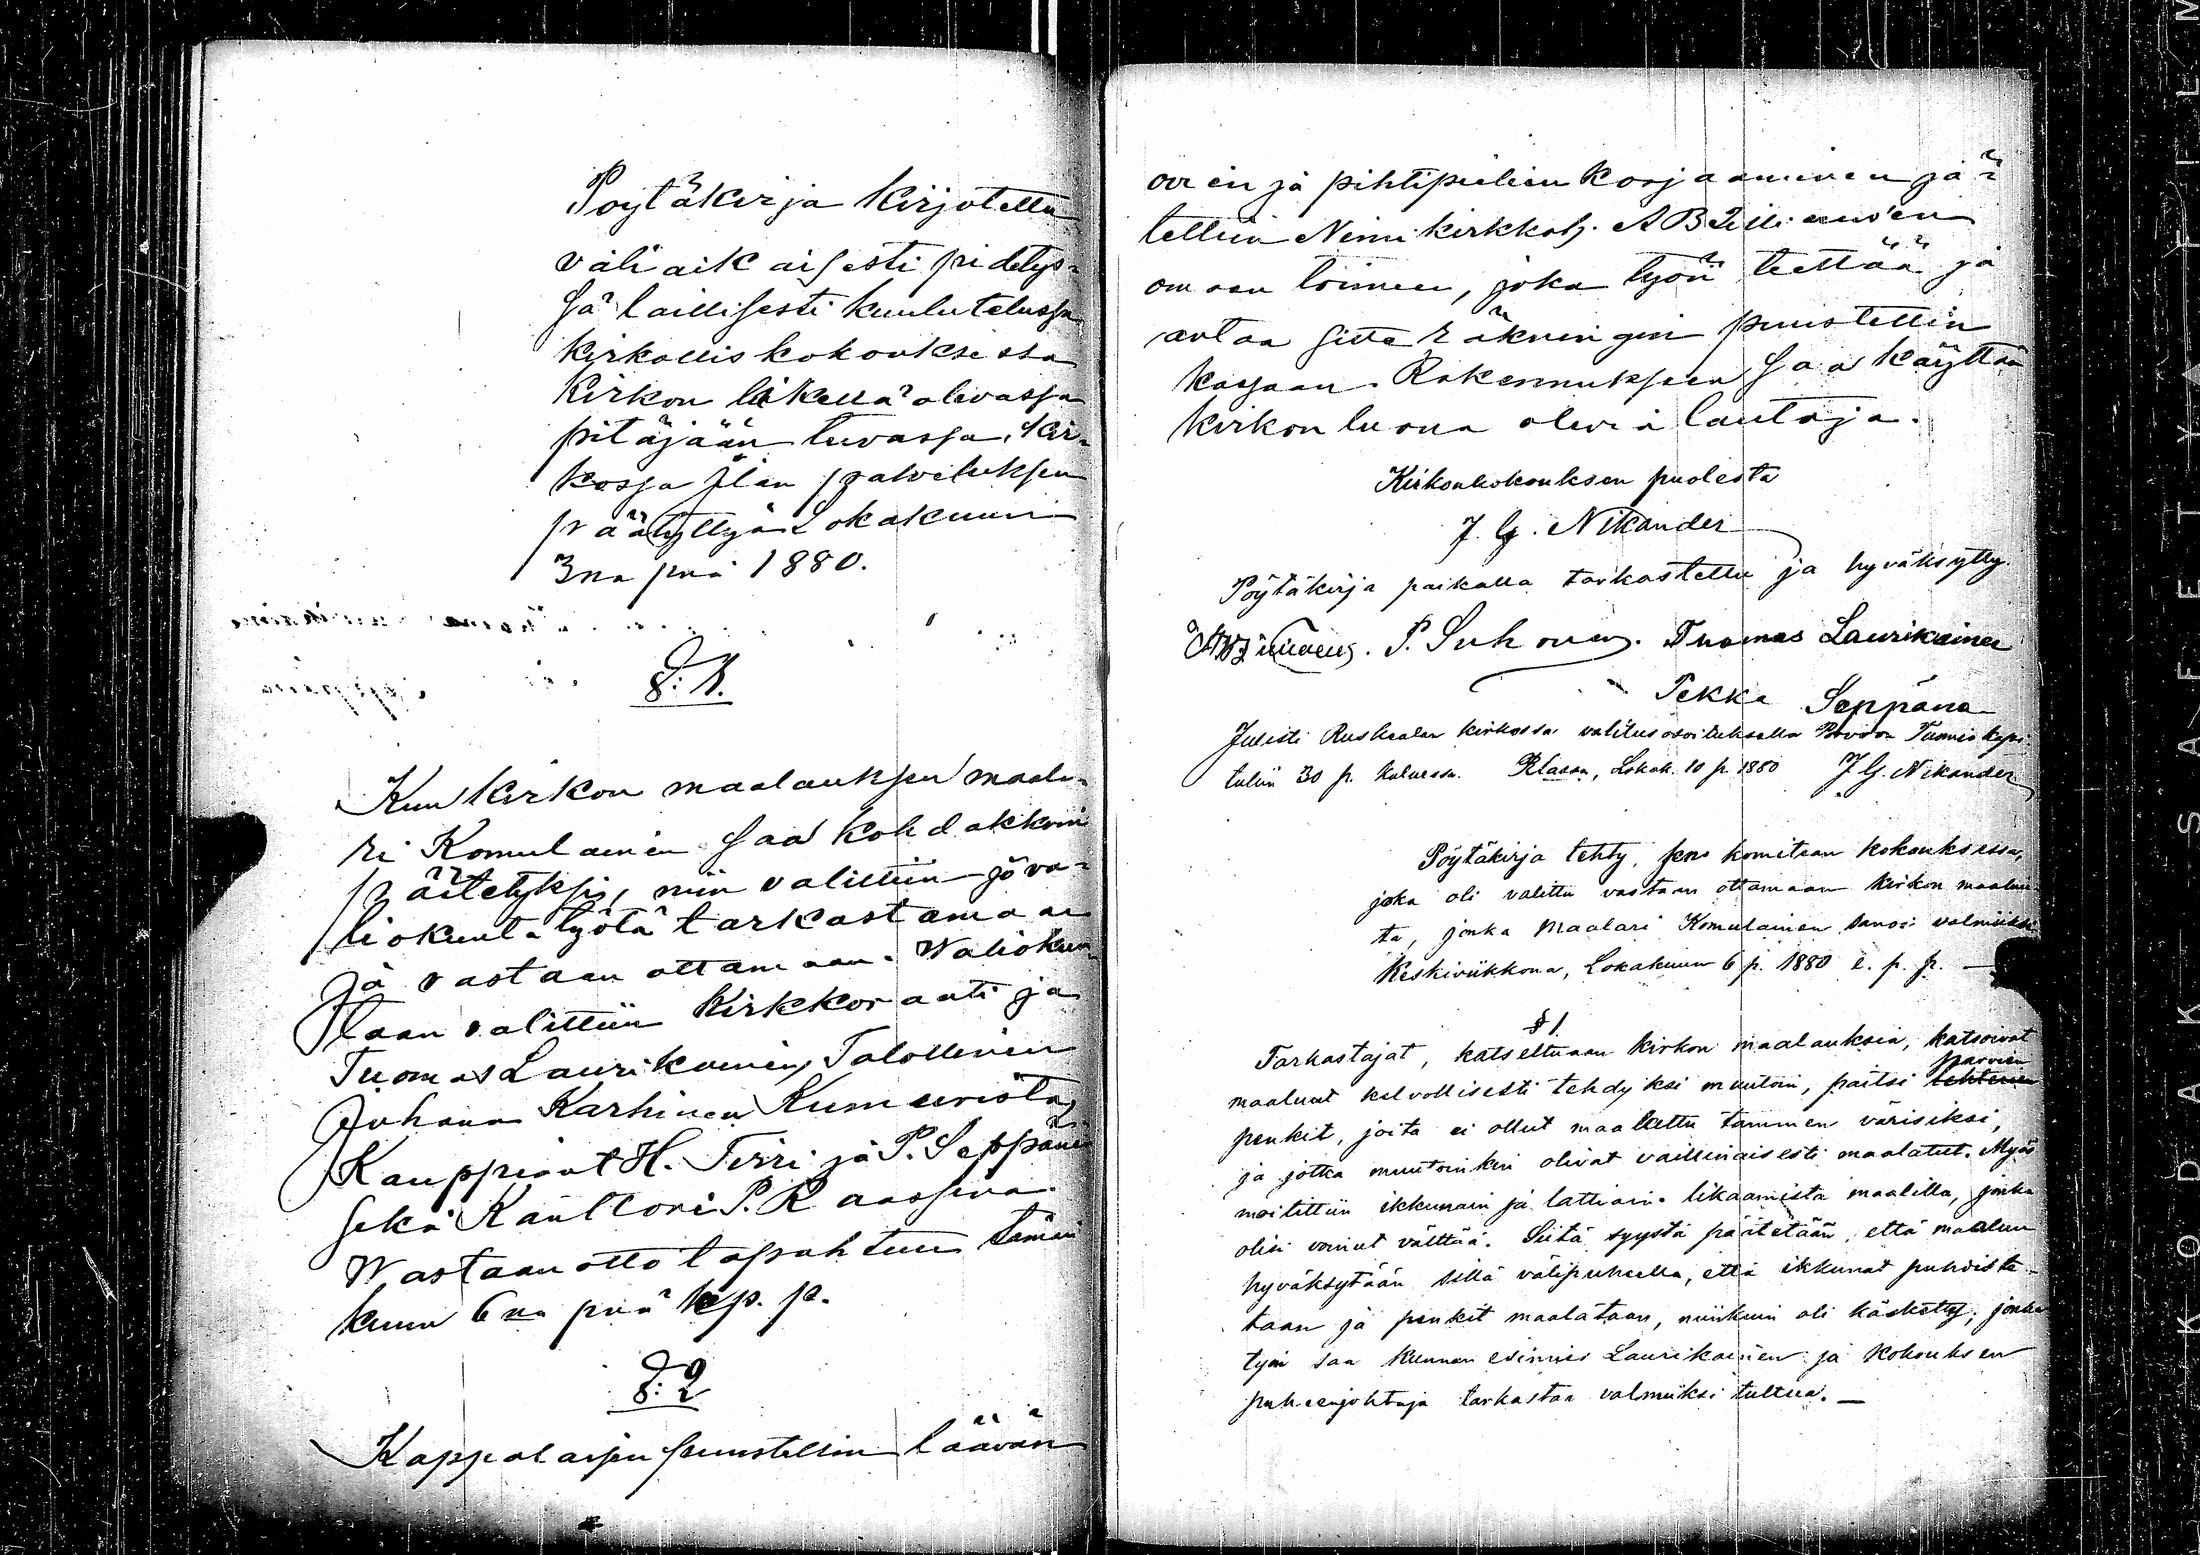 Pöytäkirja kirjotettu
väliaikaisesti pidetys-
sä laillisesti kuulutetussa
kirkolliskokouksessa
Kirkon likellä olevassa
pitäjään tuvassa, Kir-
kossa Jlan palveluksen
päätyttyä Lokakuun
3na pnä 1880.
§: 1.
Kun kirkon maalauksen maala-
ri Komulainen saa kohdakkoin
päätetyksi, niin valittiin jo va-
liokunta työtä tarkastamaan
ja vastaan ottamaan. Waliokun-
taan valittiin Kirkkoraati ja
Tuomas Laurikainen, Talollinen
Juhana Karhinen Kumurista,
Kauppiaat H. Tirri ja P. Seppänen
sekä Kanttori P. Raassina.
Wastaanotto tapahtuu tämän
kuun 6na pnä kp. p.
§: 2
Kappalaisen puustellin läävän
ovein ja pihtipielien korjaaminen jä-
tettiin Nimikirkkoh. A B
omaan toimeen, joka työn teettää ja
antaa sitte räkningin puustellin
kassaan. Rakennukseen saa käyttää
kirkon luona olevia lautoja.
Kirkonkokouksen puolesta
J. G. Nikander
Pöytäkirja paikalla tarkastettu ja hyväksytty.
P. Suhonen. Tuomas Laurikainen
Pekka Seppäna
Julisti Ruskealan kirkossa valitusosoituksella Porvoon Tuomiokapi-
tuliin 30 p. kuluessa. Lokak. 10 p. 1880 J. G. Nikander
Pöytäkirja tehty, sen komitean kokouksessa,
joka oli valittu vastaan ottamaan kirkon maalun-
ta, jonka Maalari Komulainen sanoi valmiiksi
Keskiviikkona, Lokakuun 6 p. 1880 e. p. p. —
§ 1.
Tarkastajat, katseltuaan kirkon maalauksia, katsoivat
maalaut kelvollisesti tehdyiksi muutoin, paitsi parvien
penkit, joita ei ollut maalattu tammen värisiksi,
ja jotka muutoinkin olivat vaillinaisesti maalatut. Myös
moitittiin ikkunain ja lattiain likaamista maalilla, jonka
olisi voinut välttää. Siitä syystä päätetään, että maalun
hyväksytään sillä välipuheella, että ikkunat puhdiste-
taan ja penkit maalataan, niinkuin oli käsketty; jonka
työn saa kunnan esimies Laurikainen ja kokouksen
puheenjohtaja tarkastaa valmiiksi tultua. —
KODAK SAFETY FILM